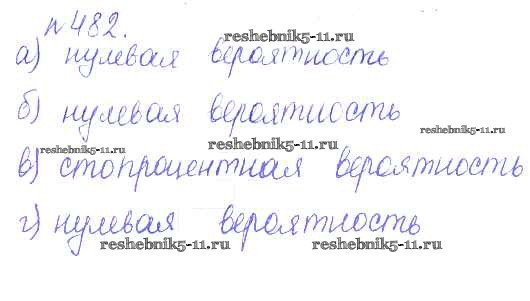 №482.
reshebnik5-11.ru
а) нулевая вероятность
б) нулевая вероятность
reshebnik5-11.ru
reshebnik5-11.ru
reshebnik5-11.ru
в) стопроцентная вероятность
г) нулевая вероятность
reshebnik5-11.ru reshebnik5-11.ru